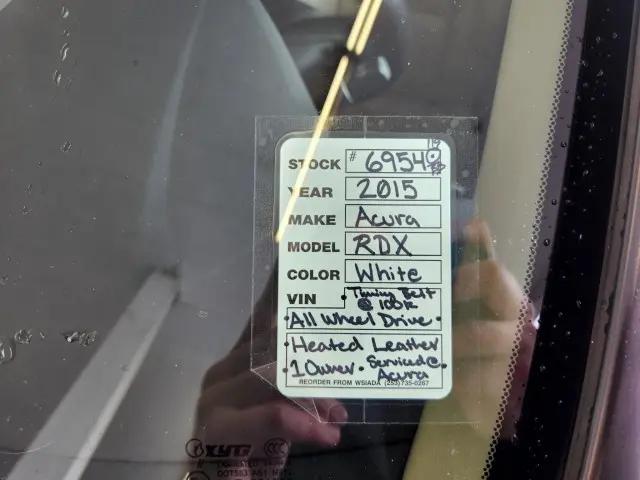 STOCK # 6954
YEAR 2015
MAKE Acura
MODEL RDX
COLOR White
VIN • Timing Belt
@ 100k
• All Wheel Drive •
• Heated Leather
• 1 Owner • Serviced @ •
Acura
REORDER FROM WSIADA (253)735-0267
XYG